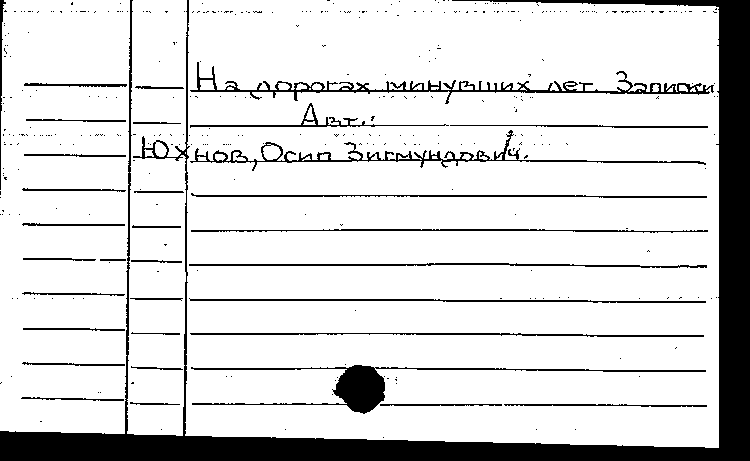 На дорогах минувших лет. Записки
Авт.:
Юхнов, Осип Зигмундович.